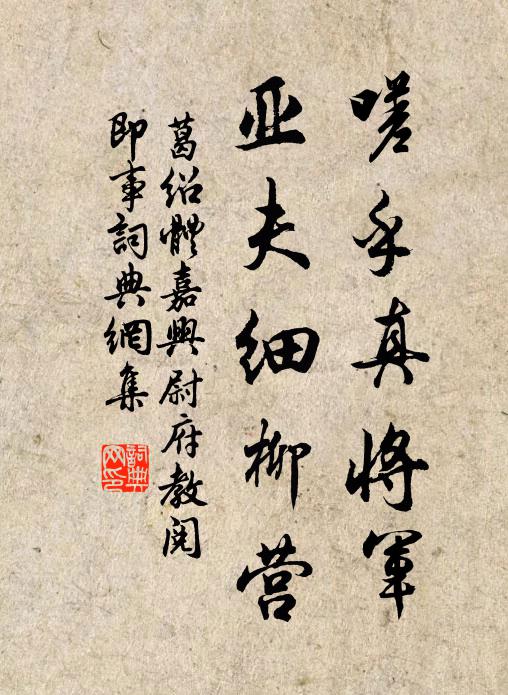 嗟乎真將軍
亚夫细柳营
葛绍體嘉興尉府教阅
即事詞典網集
詞典网印